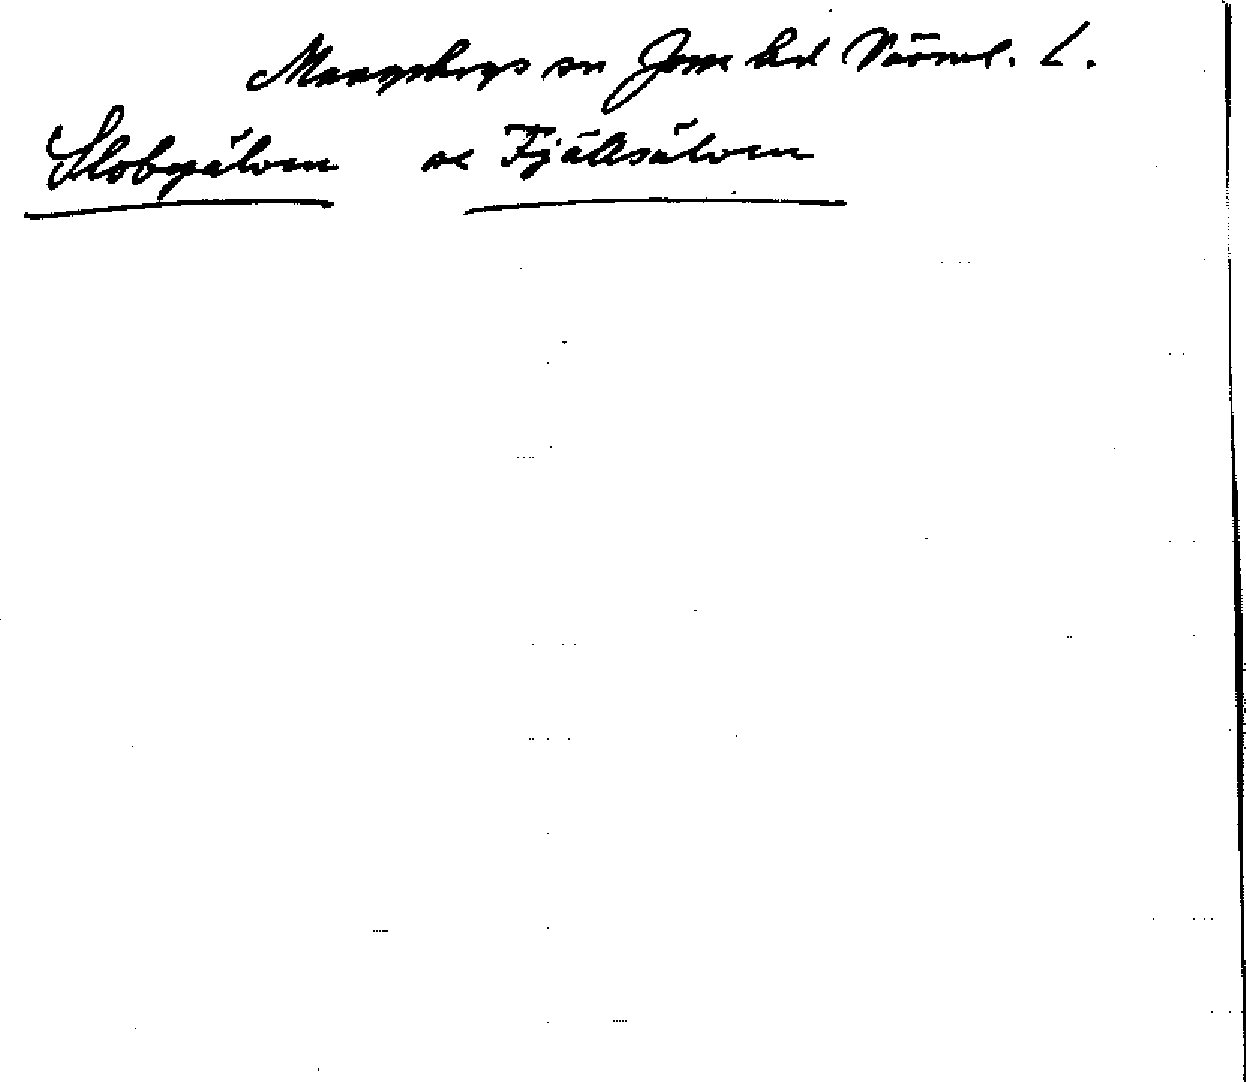 Mangskogs sn Jösse hd Värml. L.
Slobyälven se Fjällsälven